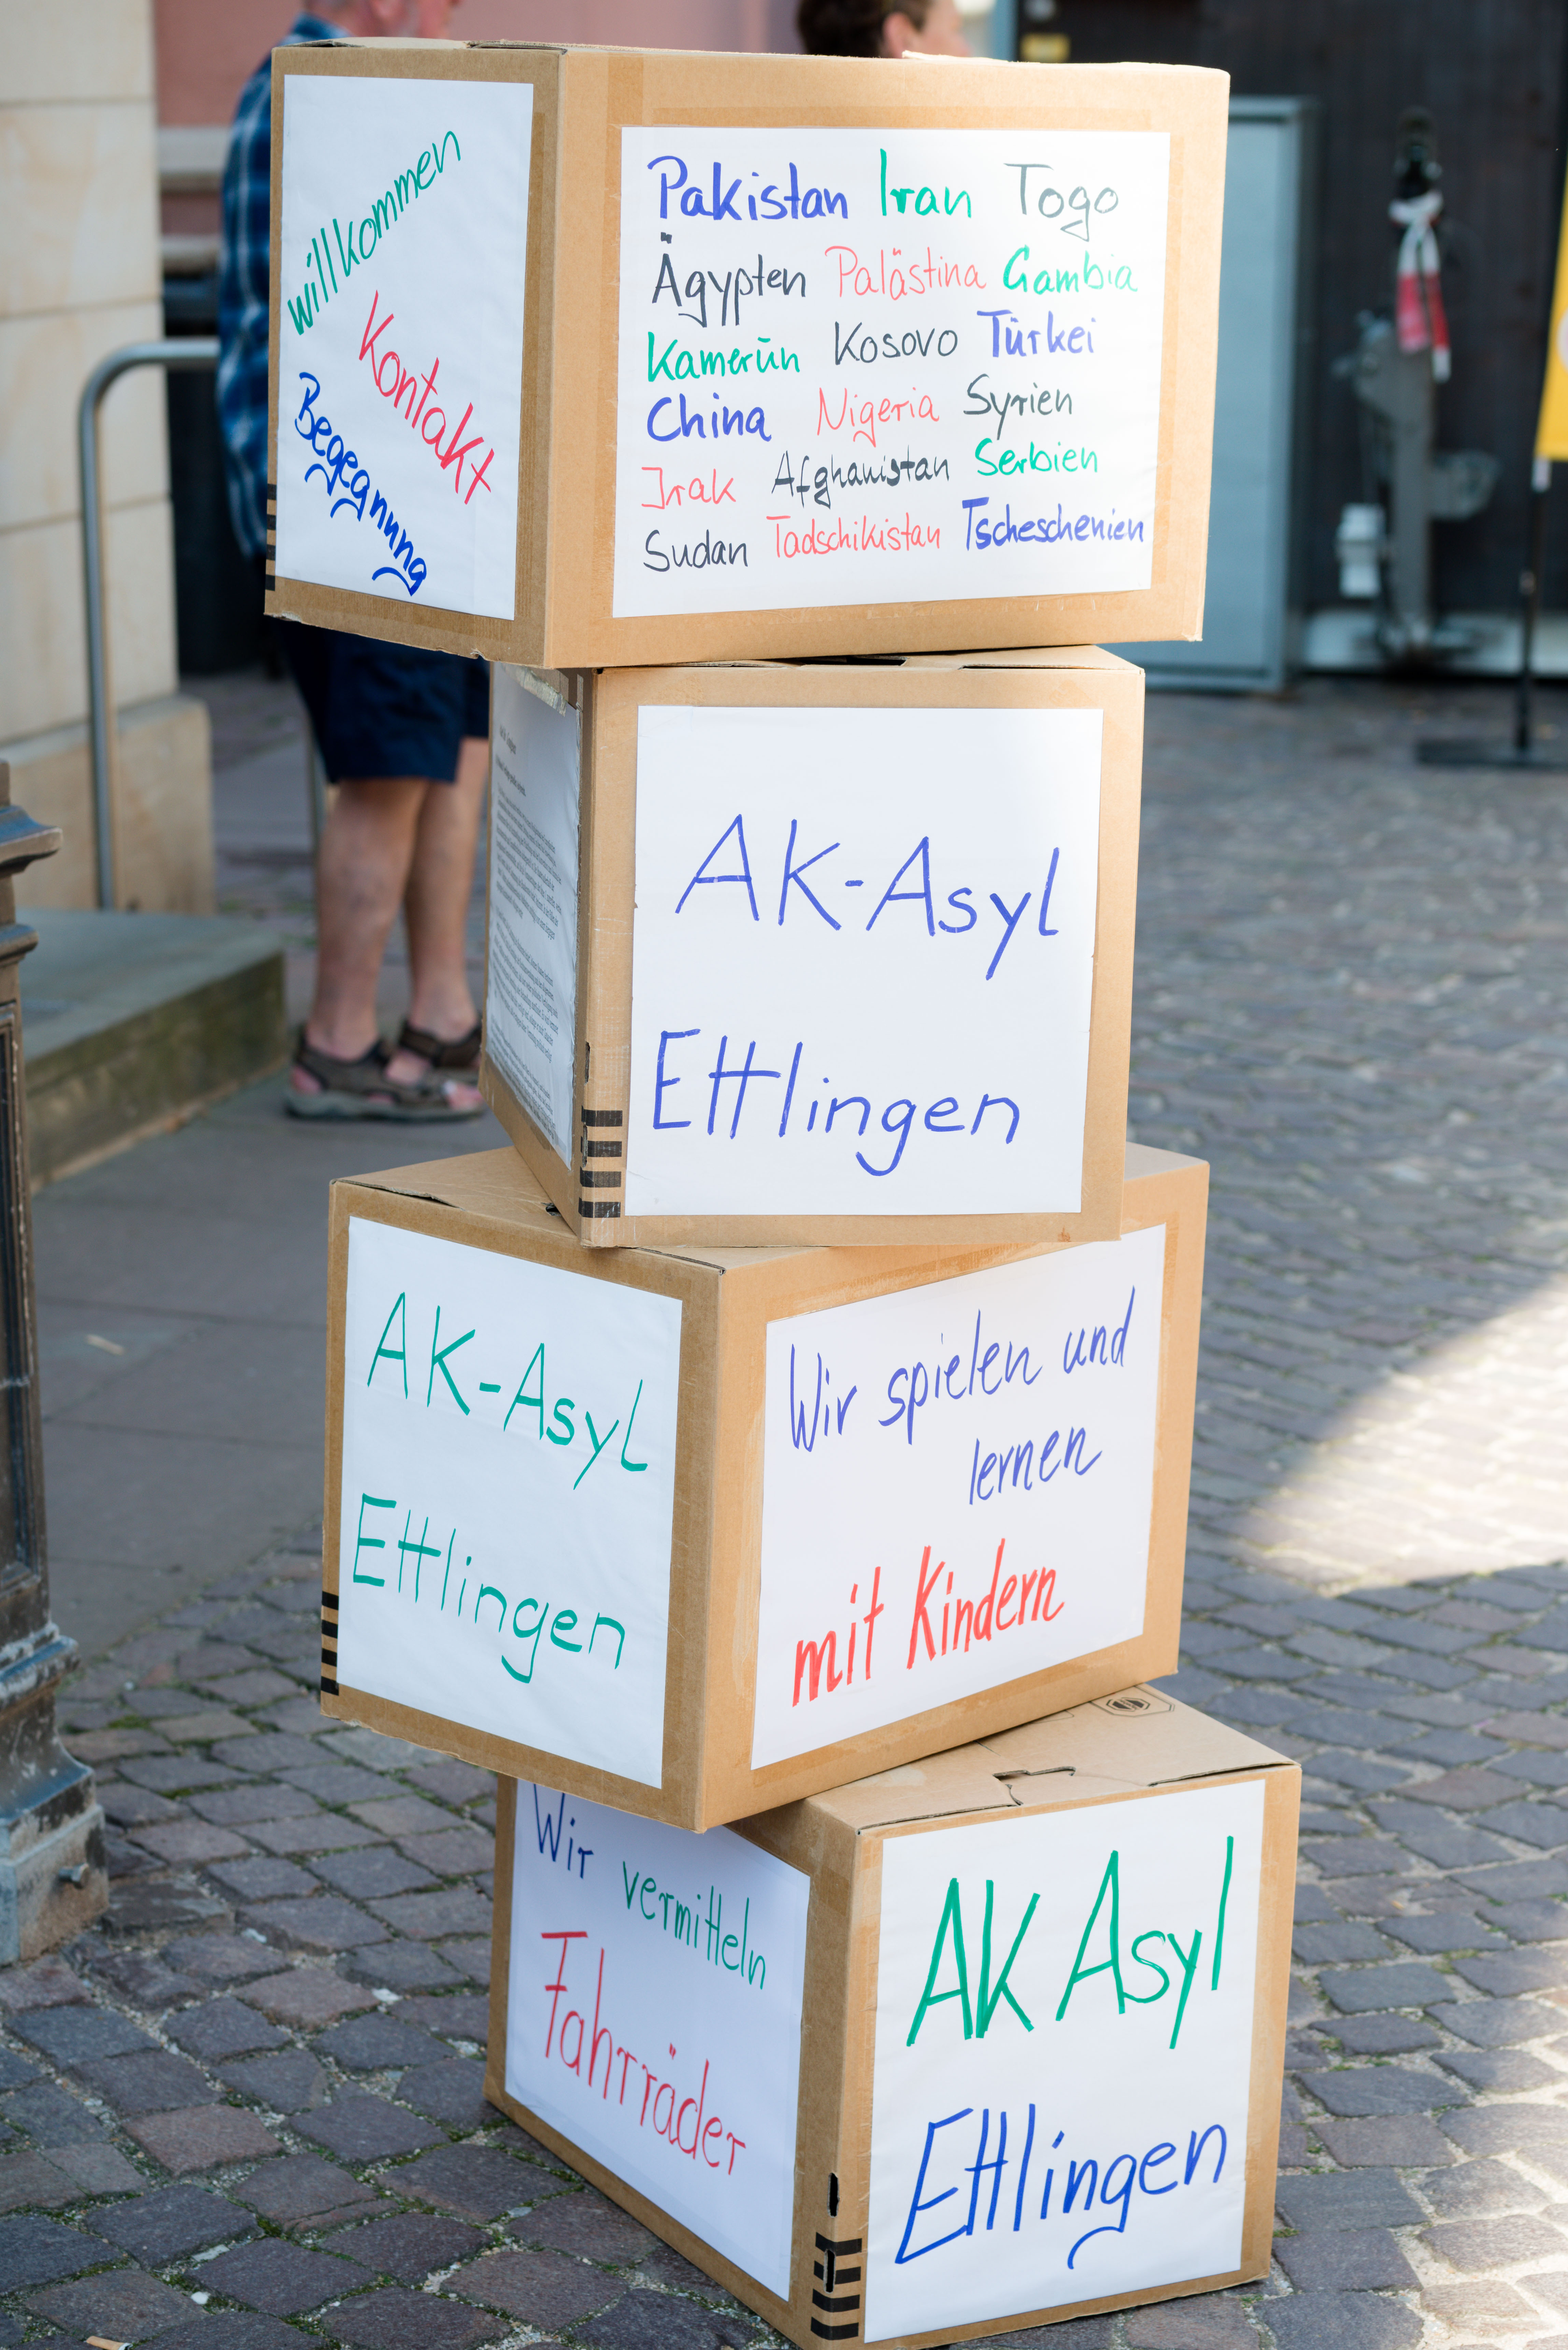 willkommen
Kontakt
Begegnung
Pakistan Iran Togo
Ägypten Palästina Gambia
Kamerūn Kosovo Türkei
China Nigeria Syrien
Irak Afghanistan Serbien
Sudan Tadschikistan Tscheschenien
AK-Asyl
Ettlingen
AK-Asyl
Ettlingen
Wir spielen und
lernen
mit Kindern
Wir vermitteln
Fahrräder
AK Asyl
Ettlingen